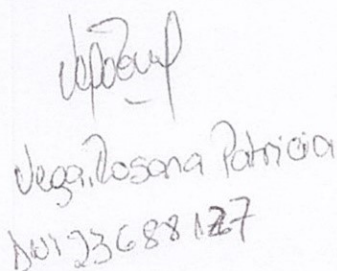 Vega, Rosana Patricia
DNI 23688127